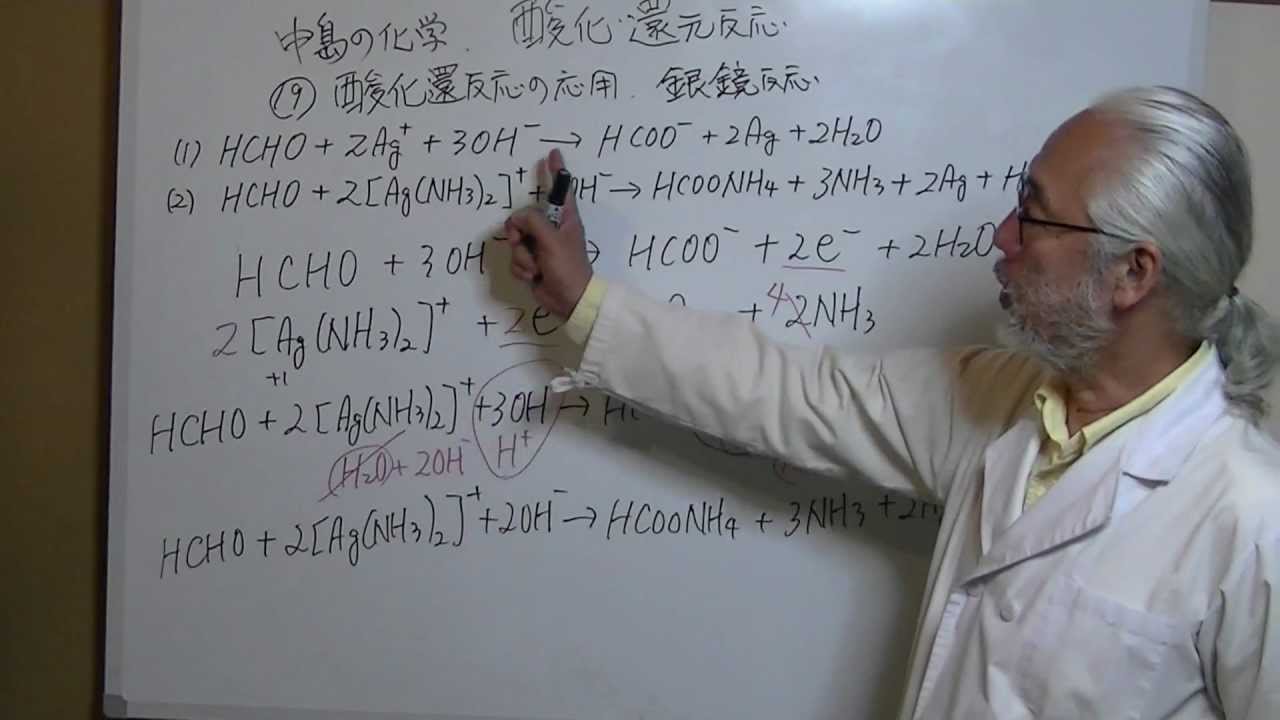 中島の化学. 酸化・還元反応
⑲ 酸化還反応の応用. 銀鏡反応
(1) HCHO + 2Ag⁺ + 3OH⁻ → HCOO⁻ + 2Ag + 2H₂O
(2) HCHO + 2[Ag(NH₃)₂]⁺ + OH⁻ → HCOONH₄ + 3NH₃ + 2Ag + H
HCHO + 3OH⁻ → HCOO⁻ + 2e⁻ + 2H₂O
2[Ag(NH₃)₂]⁺ + 2e + 4 2NH₃
+1
HCHO + 2[Ag(NH₃)₂]⁺ + 3OH → H
H₂O + 2OH⁻ H⁺
HCHO + 2[Ag(NH₃)₂]⁺ + 2OH⁻ → HCOONH₄ + 3NH₃ + 2